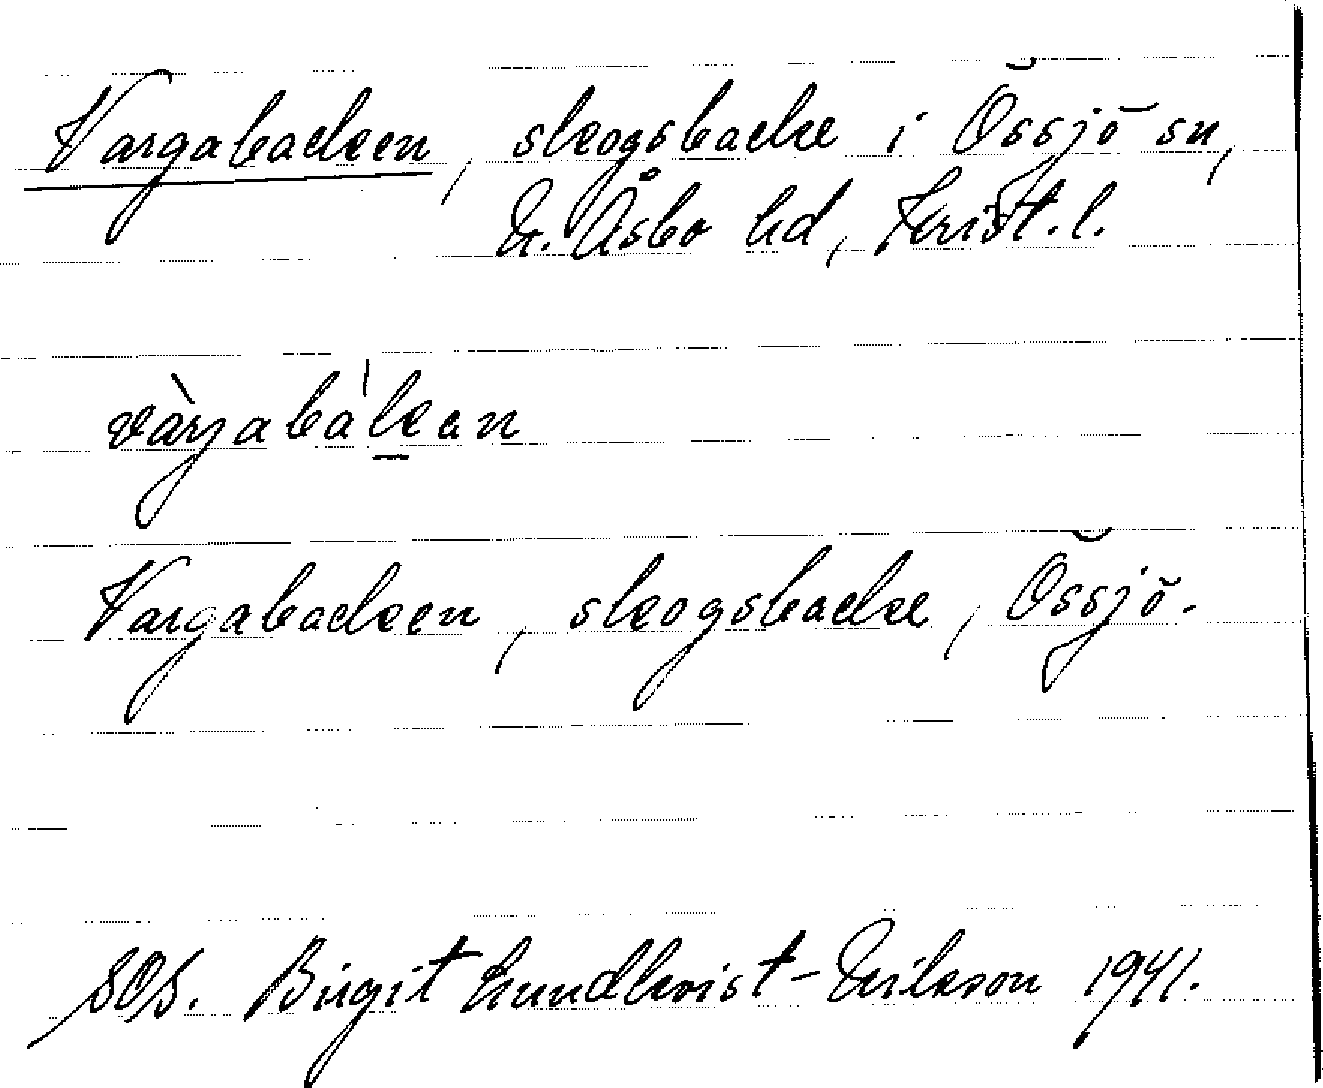 Vargabacken, skogsbacke i Össjö sn,
N. Åsbo hd, Krist.l.
vàrjabàˈkan
Vargabacken, skogsbacke, Össjö.
SOS. Birgit Lundkvist-Nilsson 1941.